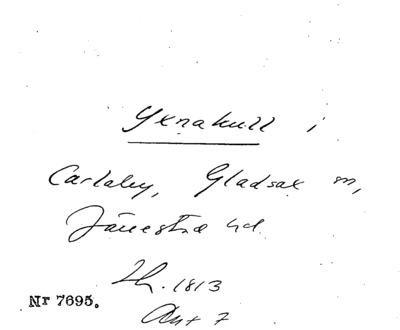 Yxnakull i
Carlaby, Gladsax sn,
Järrestad hd.
Th. 1813
Ant 7
Nr 7695.